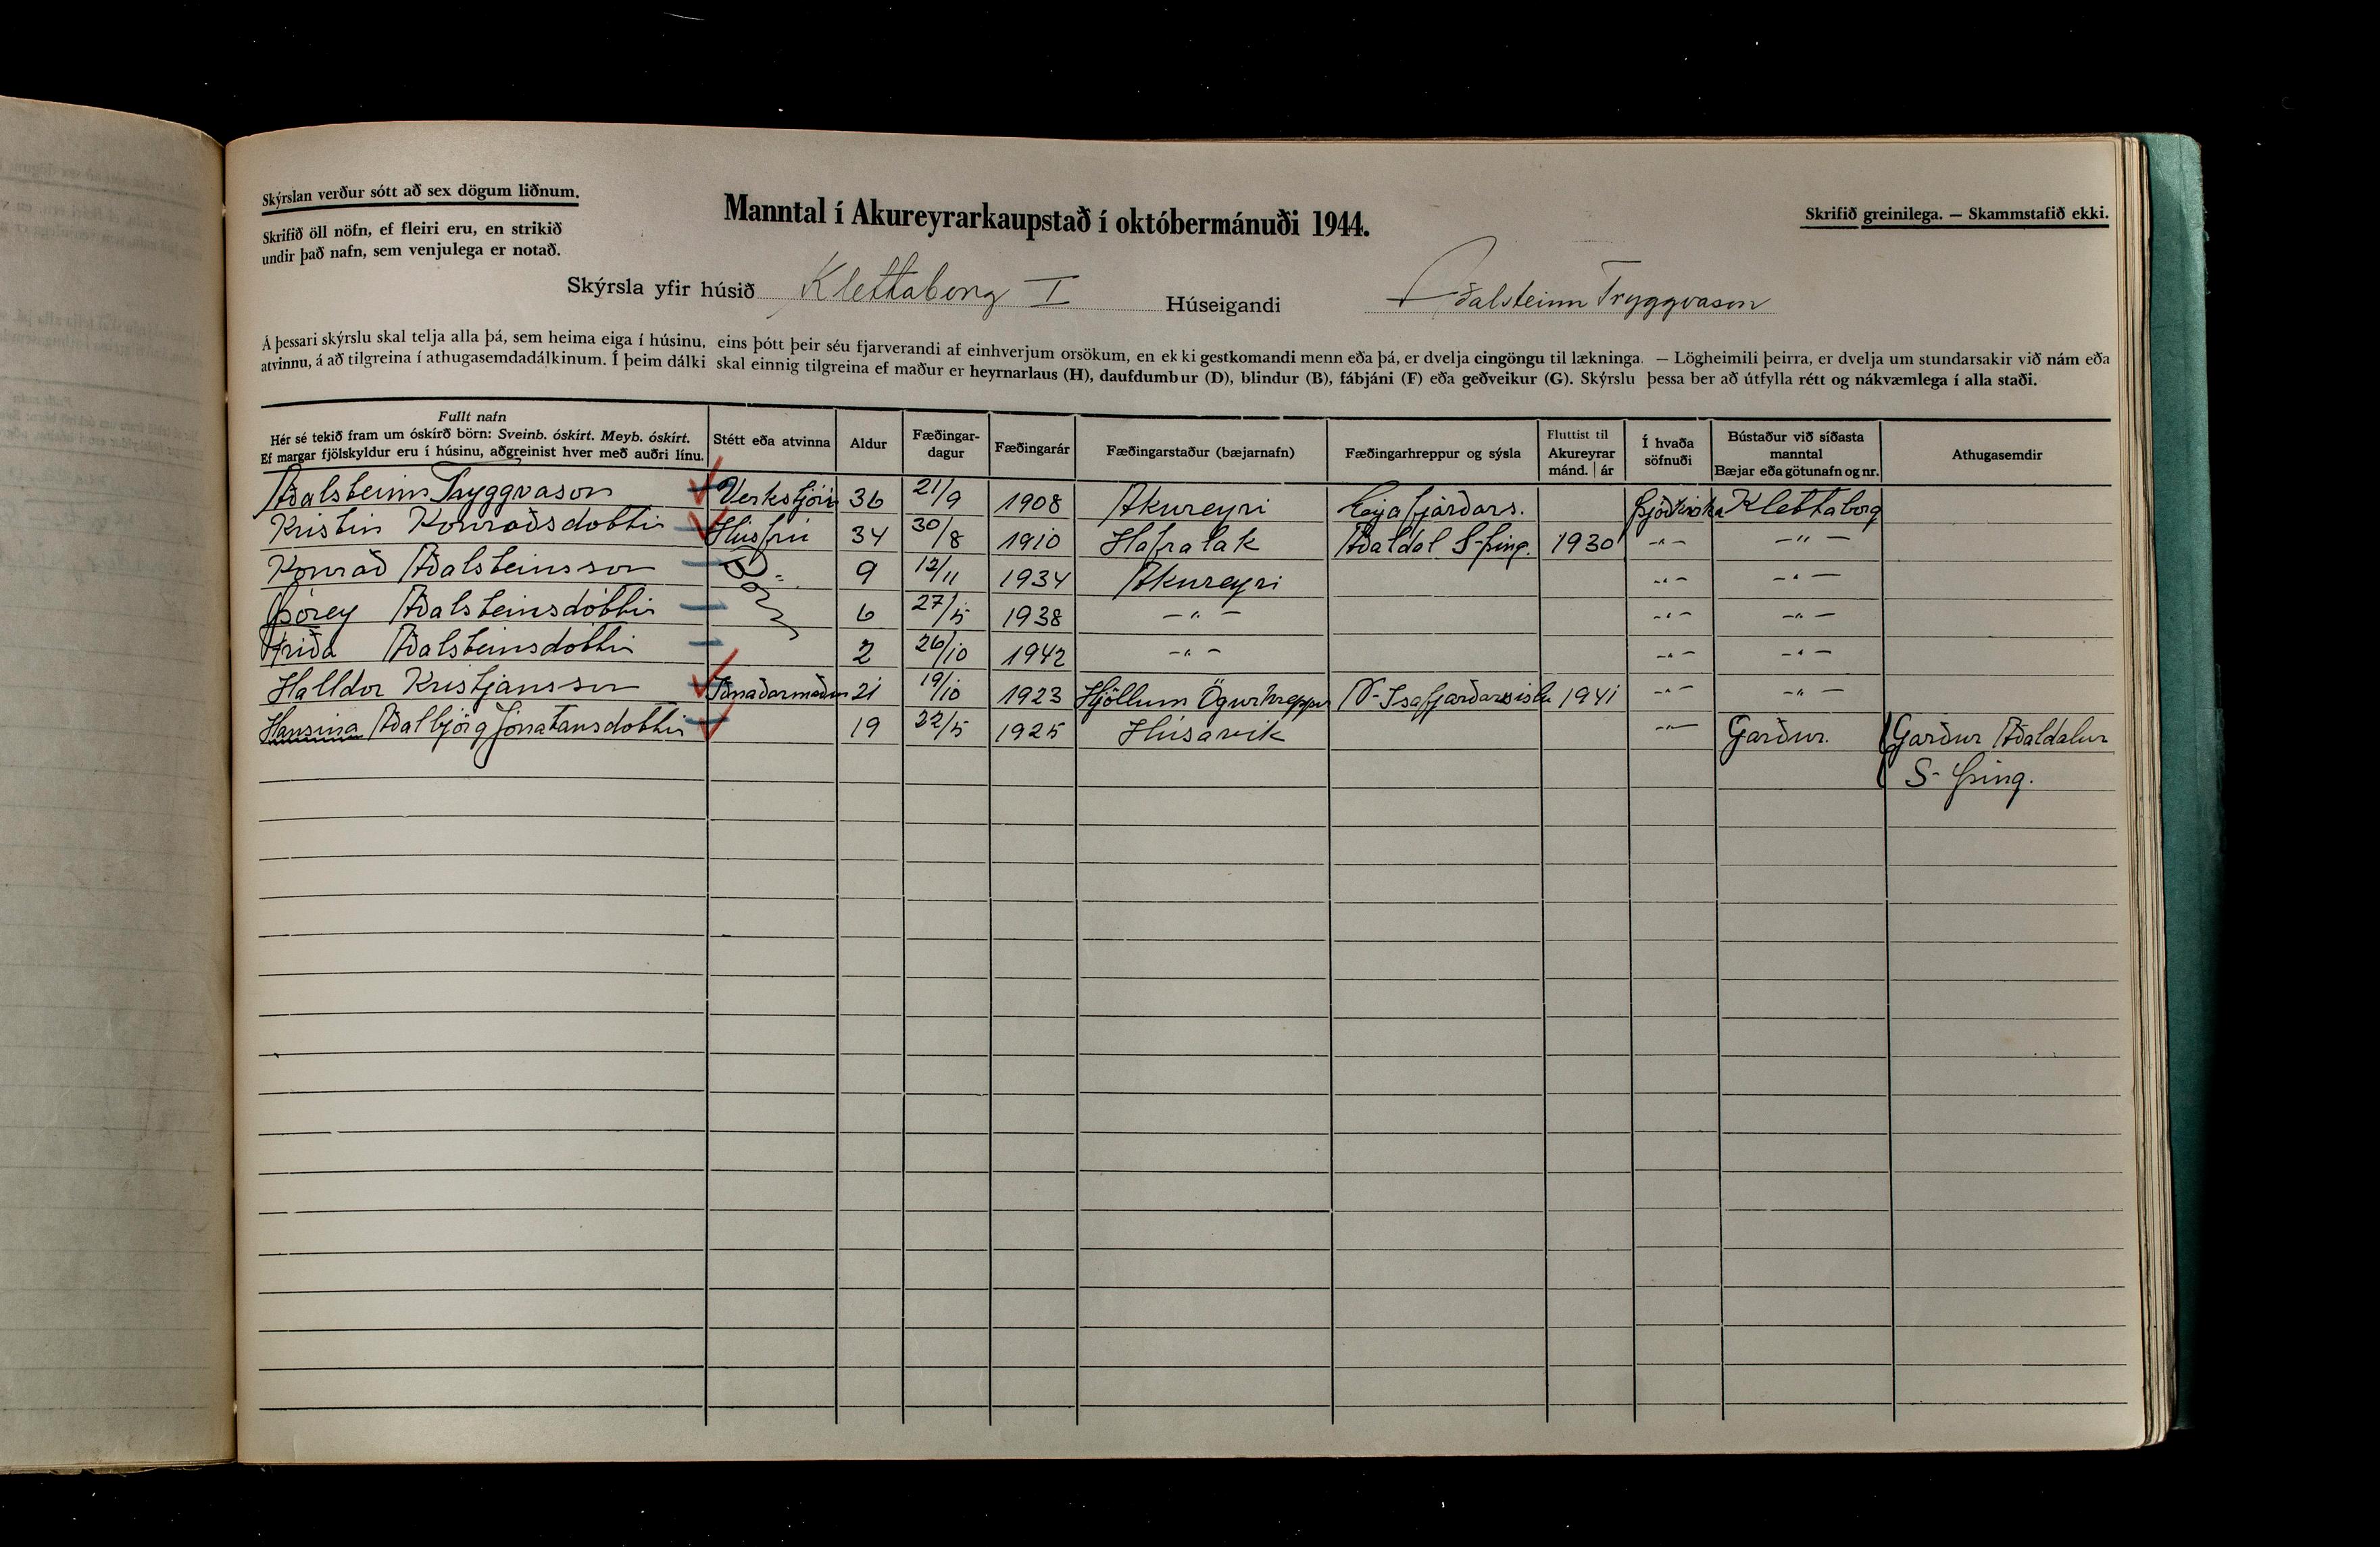 Skýrslan verður sótt að sex dögum liðnum.
Skrifið öll nöfn, ef fleiri eru, en strikið
undir það nafn, sem venjulega er notað.
Manntal í Akureyrarkaupstað í októbermánuði 1944.
Skrifið greinilega. — Skammstafið ekki.
Skýrsla yfir húsið Klettaborg I Húseigandi Aðalsteinn Tryggvason
Á þessari skýrslu skal telja alla þá, sem heima eiga í húsinu, eins þótt þeir séu fjarverandi af einhverjum orsökum, en ekki gestkomandi menn eða þá, er dvelja eingöngu til lækninga. — Lögheimili þeirra, er dvelja um stundarsakir við nám eða
atvinnu, á að tilgreina í athugasemdadálkinum. Í þeim dálki skal einnig tilgreina ef maður er heyrnarlaus (H), daufdumbur (D), blindur (B), fábjáni (F) eða geðveikur (G). Skýrslu þessa ber að útfylla rétt og nákvæmlega í alla staði.
Fullt nafn
Hér sé tekið fram um óskírð börn: Sveinb. óskírt. Meyb. óskírt.
Ef margar fjölskyldur eru í húsinu, aðgreinist hver með auðri línu.
Stétt eða atvinna
Aldur
Fæðingar-
dagur
Fæðingarár
Fæðingarstaður (bæjarnafn)
Fæðingarhreppur og sýsla
Fluttist til
Akureyrar
mánd. | ár
Í hvaða
söfnuði
Bústaður við síðasta
manntal
Bæjar eða götunafn og nr.
Athugasemdir
Aðalsteinn Tryggvason Verkstjóri 36 21/9 1908 Akureyri Eyjafjarðars. Þjóðkirkju Klettaborg
Kristin Konraðsdottir Húsfrú 34 30/8 1910 Hafralak Aðaldal S-Þing. 1930 -"- -"-
Konrað Aðalsteinsson Börn 9 12/11 1934 Akureyri -"- -"-
Þórey Aðalsteinsdóttir 6 27/5 1938 -"- -"- -"-
Friða Aðalsteinsdóttir 2 26/10 1942 -"- -"- -"-
Halldor Kristjansson Iðnaðarmaður 21 19/10 1923 Hjöllum Ögurhreppur N-Isafjarðarsislu 1941 -"- -"-
Hansina Aðalbjörg Jónatansdottir 19 22/5 1925 Húsavik -"- Garður. Garður Aðaldalur
S-Þing.